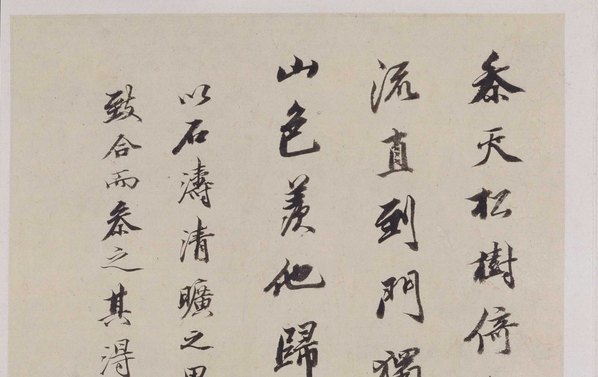 参天松樹倚
流直到門獨
山色羨他歸
以石濤清曠之思
致合而参之其得